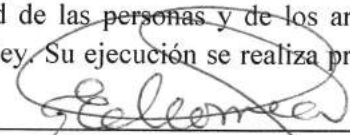 d de las personas y de los an
ey. Su ejecución se realiza pr